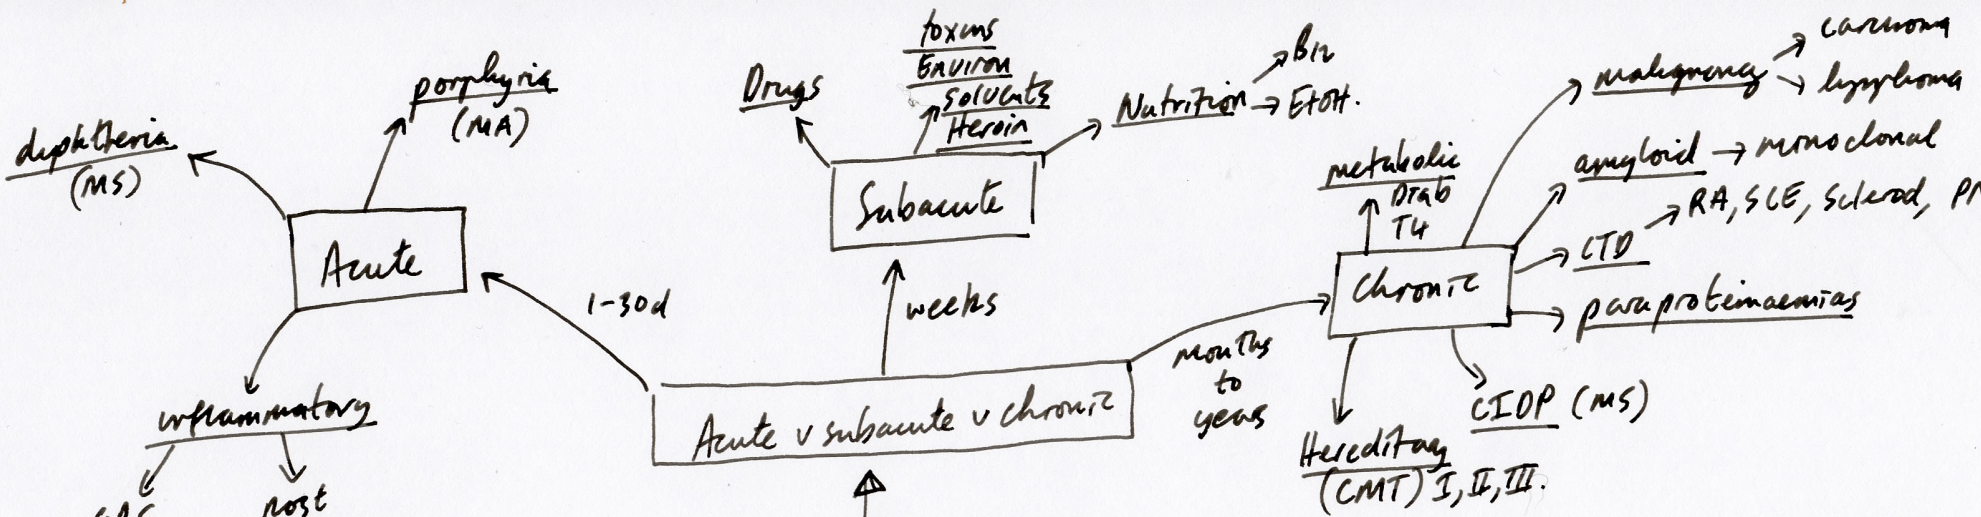 diphtheria
(MS)
porphyria
(MA)
Acute
inflammatory
post
1-30d
Drugs
toxins
Environ
Solvents
Heroin
Nutrition
B12
EtOH.
Subacute
weeks
Acute v subacute v chronic
months
to
years
metabolic
Diab
T4
Chronic
malignancy
carcinoma
lymphoma
amyloid → monoclonal
CTD
RA, SLE, Sclerod,
paraproteinaemias
CIDP (MS)
Hereditary
(CMT) I, II, III.